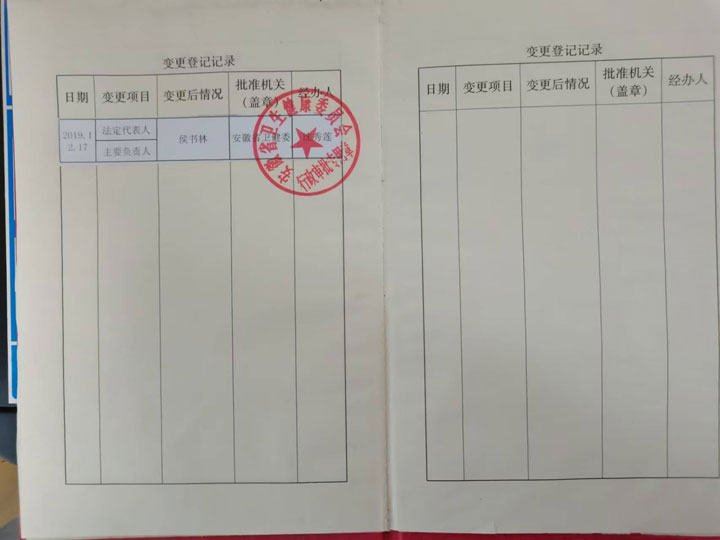 变更登记记录
日期 变更项目 变更后情况 批准机关 经办人
(盖章)
2019.1
2.17
法定代表人
主要负责人
侯书林
安徽省卫健委
秀莲
安徽省卫生健康委员会
行政审批专用章
变更登记记录
日期 变更项目 变更后情况 批准机关 经办人
(盖章)